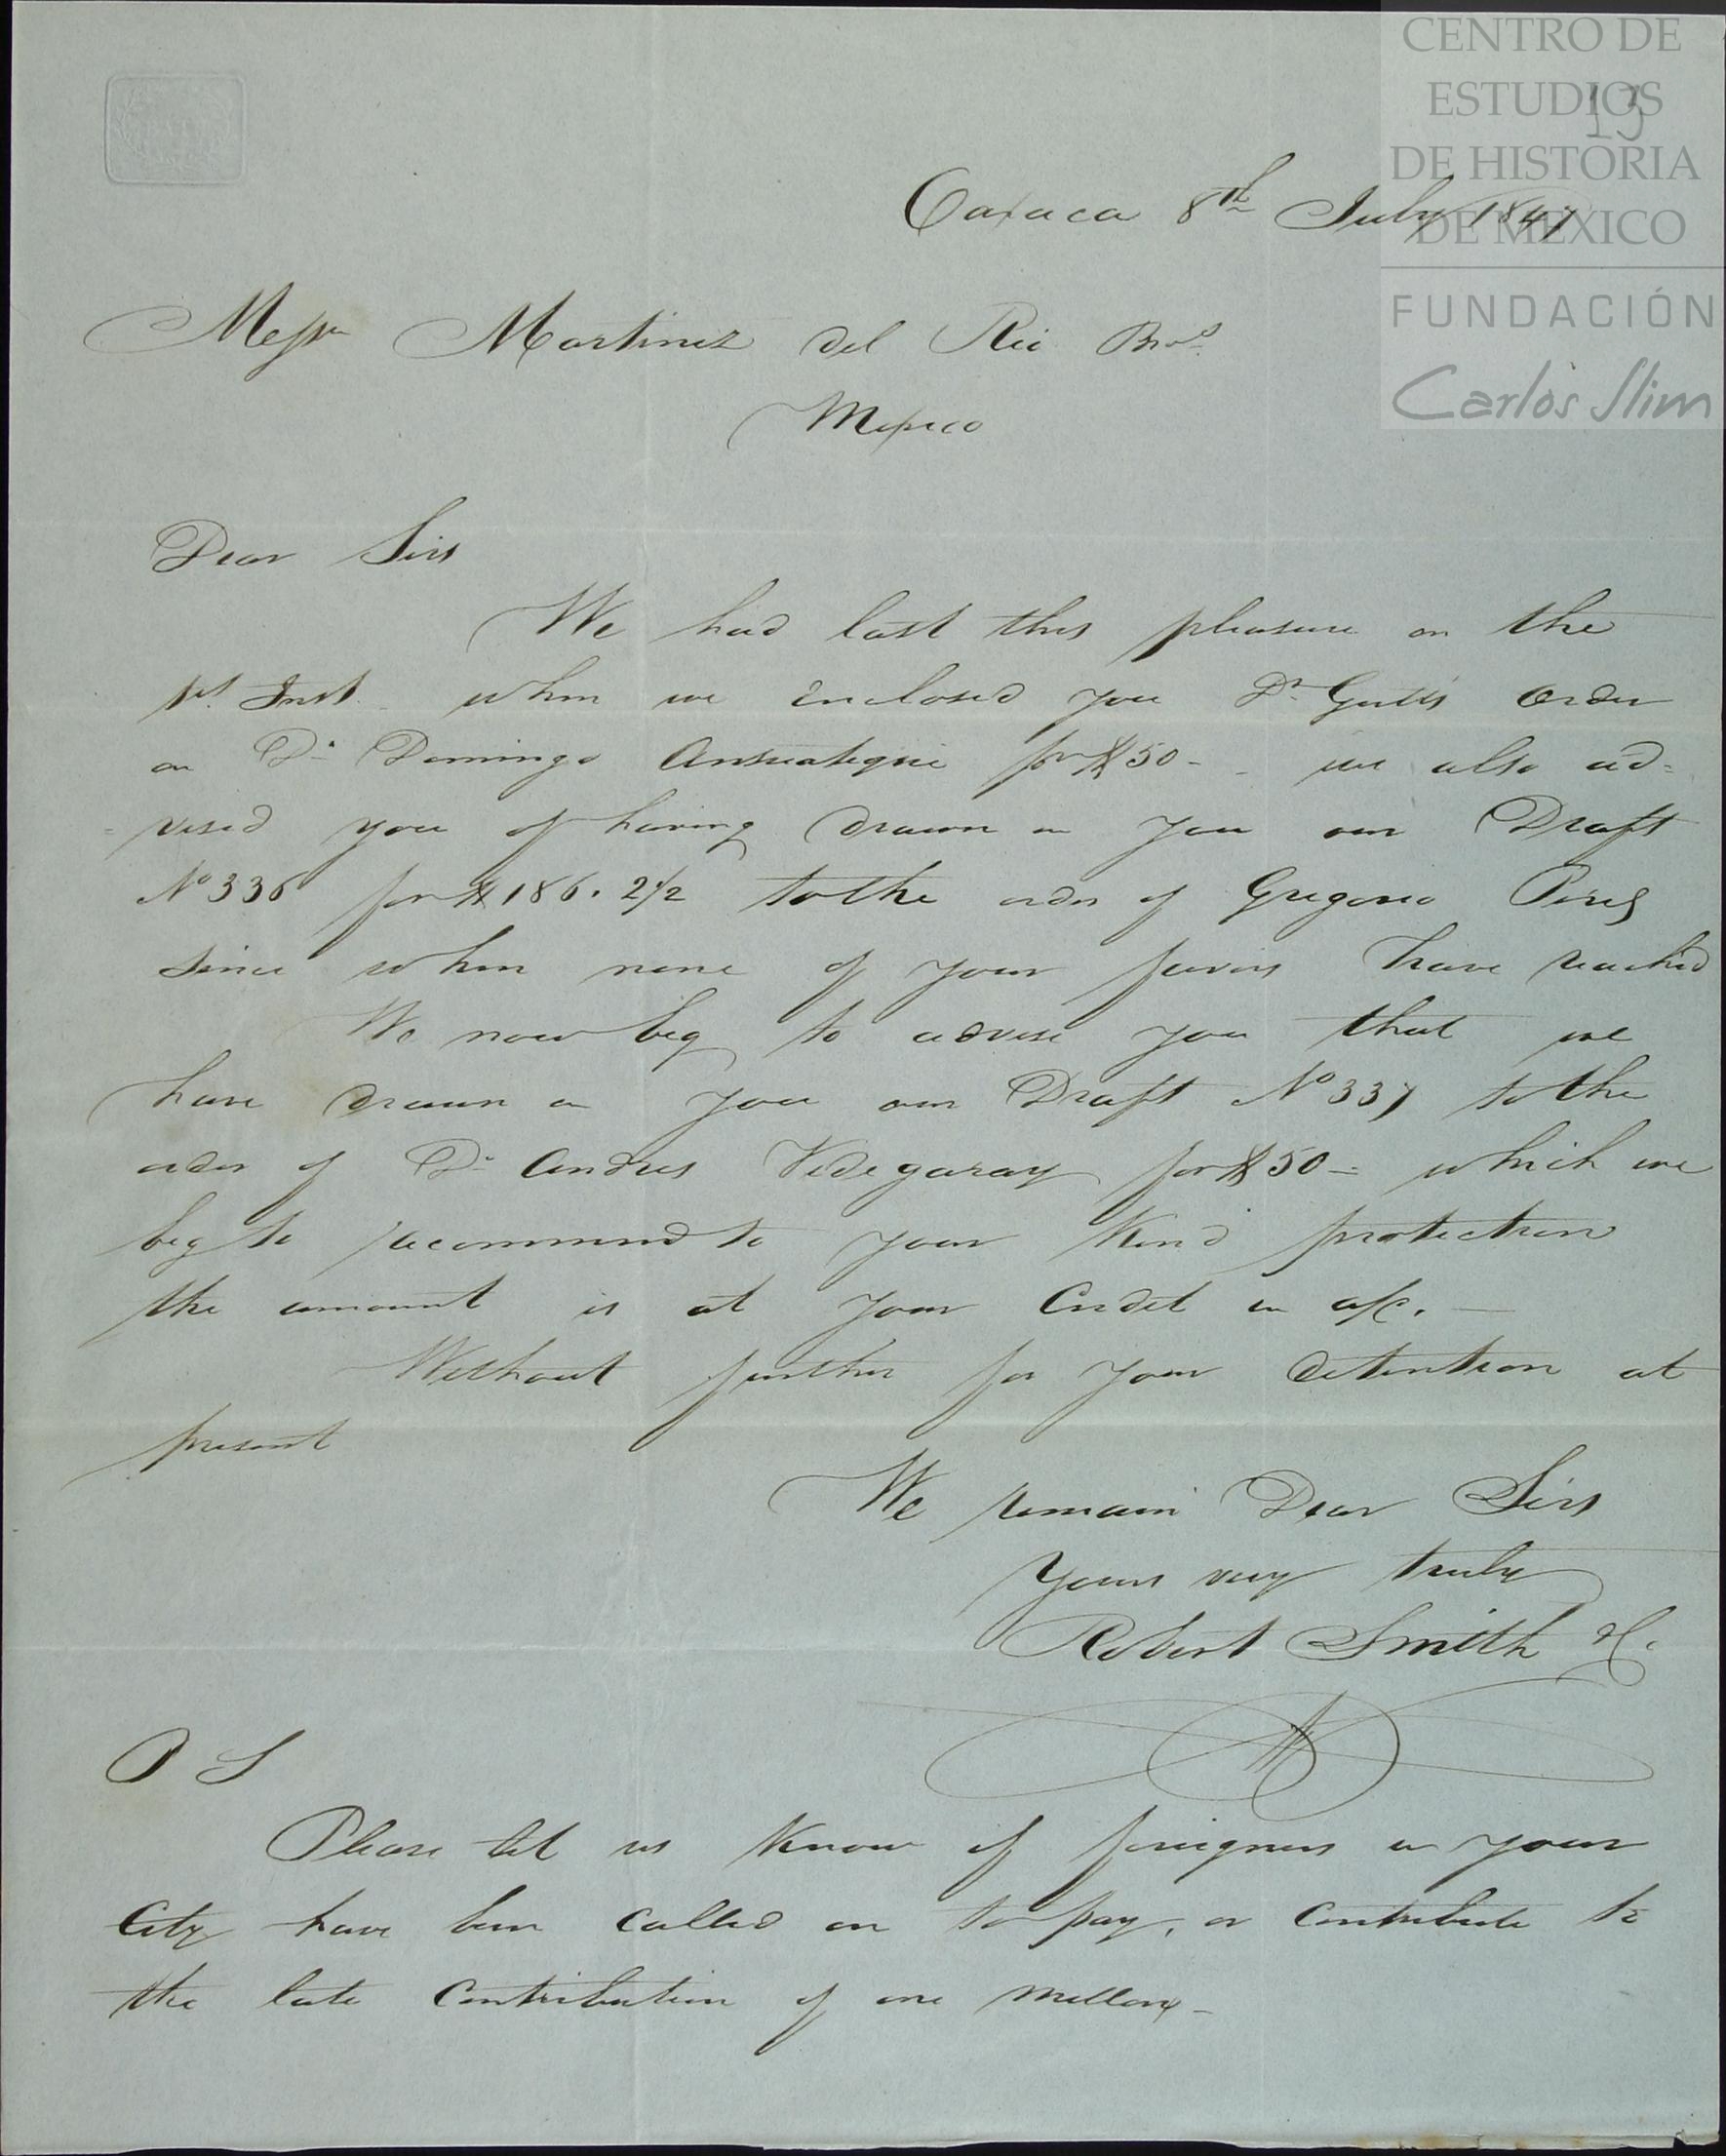 CENTRO DE
ESTUDIOS
DE HISTORIA
DE MEXICO
FUNDACIÓN
Carlos Slim
13
Oaxaca 8th July 1847
Messrs Martinez del Rio Bros.
Mexico
Dear Sirs
We had last this pleasure on the
1st Inst. when we enclosed you Dr. order
on Dn Domingo Ansuategui for $50 - we also ad=
=vised you of having drawn on you our Draft
No 336 for $186. 2 1/2 to the order of Gregorio Perez
since when none of your favors have reached
We now beg to advise you that we
have drawn on you our Draft No 337 to the
order of Dn Andres Videgaray for $50 = which we
beg to recommend to your Kind protection
the amount is at your Credit in a/c. —
Without further for your detention at
present
We remain Dear Sirs
Yours very truly
Robert Smith
P S
Please let us Know if foreigners in your
City have been Called on to pay, or Contribute to
the late Contribution of one